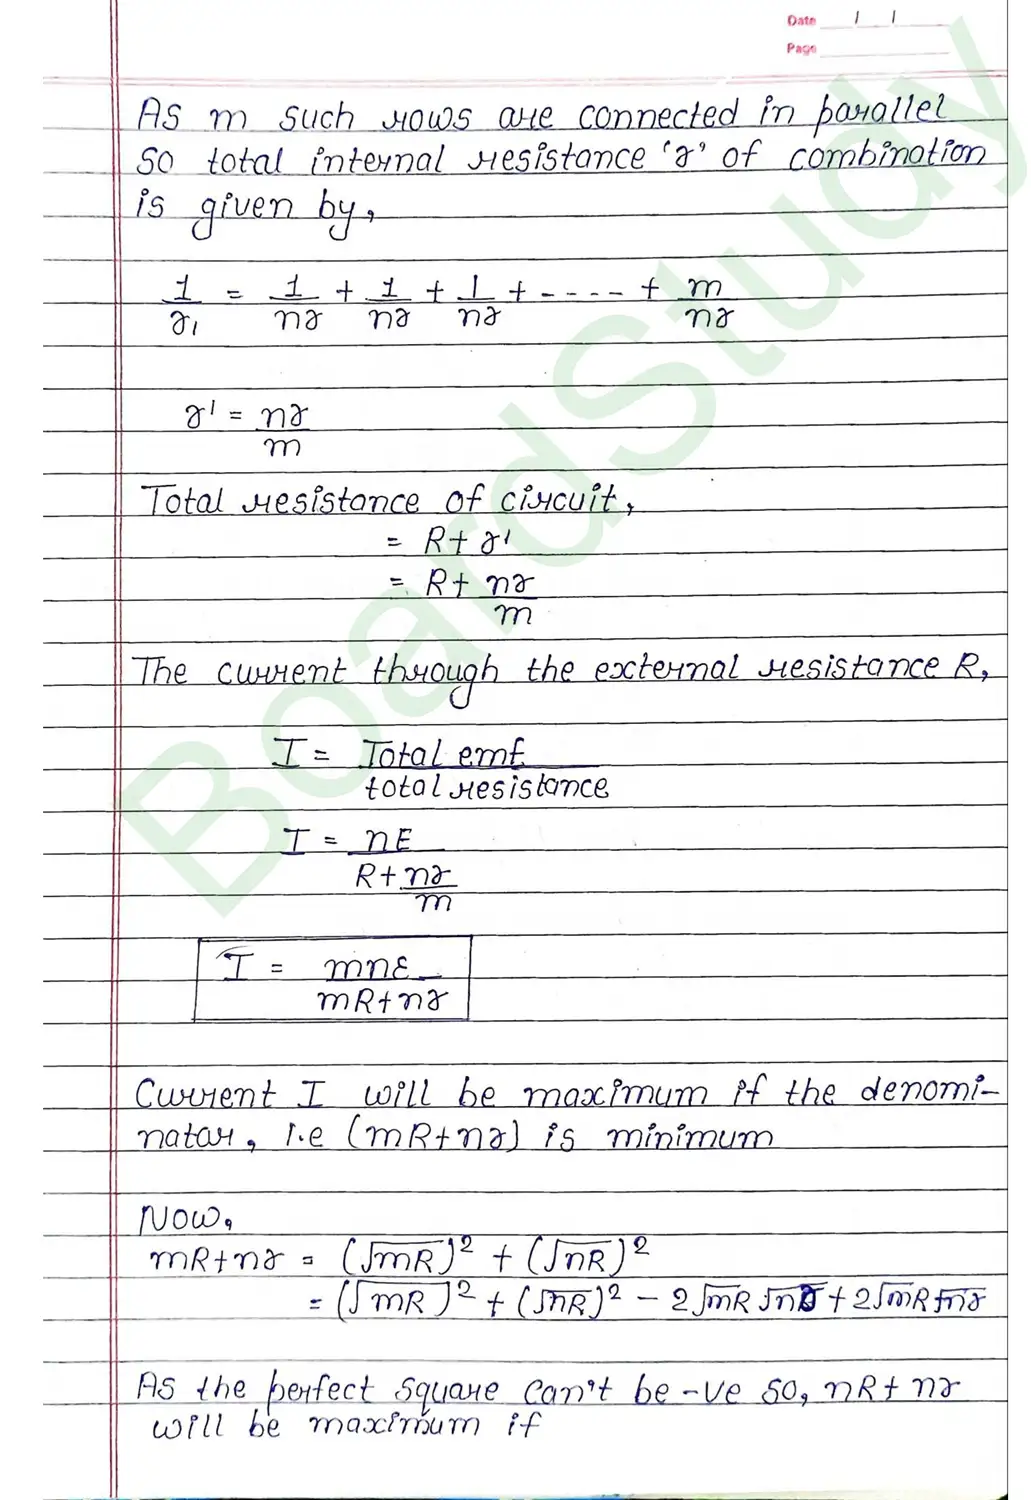 Date / /
Page
As m such rows are connected in parallel
so total internal resistance 'r' of combination
is given by,
1/r₁ = 1/nr + 1/nr + 1/nr + - - - - + m/nr
r' = nr/m
Total resistance of circuit,
= R + r'
= R + nr/m
The current through the external resistance R,
I = Total emf/total resistance
I = nE/(R + nr/m)
I = mnE/(mR+nr)
Current I will be maximum if the denomi-
natar, i.e (mR+nr) is minimum
Now,
mR+nr = (√mR)² + (√nR)²
= (√mR)² + (√nR)² - 2√mR √nr + 2√mR √nr
As the perfect square can't be -ve so, nR + nr
will be maximum if
BoardStudy